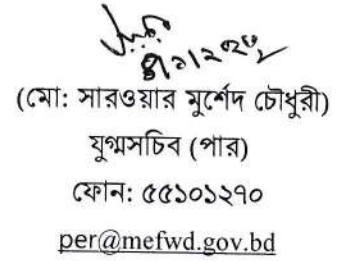 (মো: সারওয়ার মুর্শেদ চৌধুরী)
যুগ্মসচিব (পার)
ফোন: ৫৫১০১২৭০
per@mefwd.gov.bd